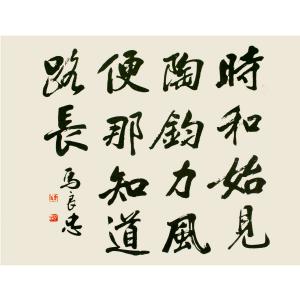 時和始見
陶鈞力風
便那知道
路長
馬良忠